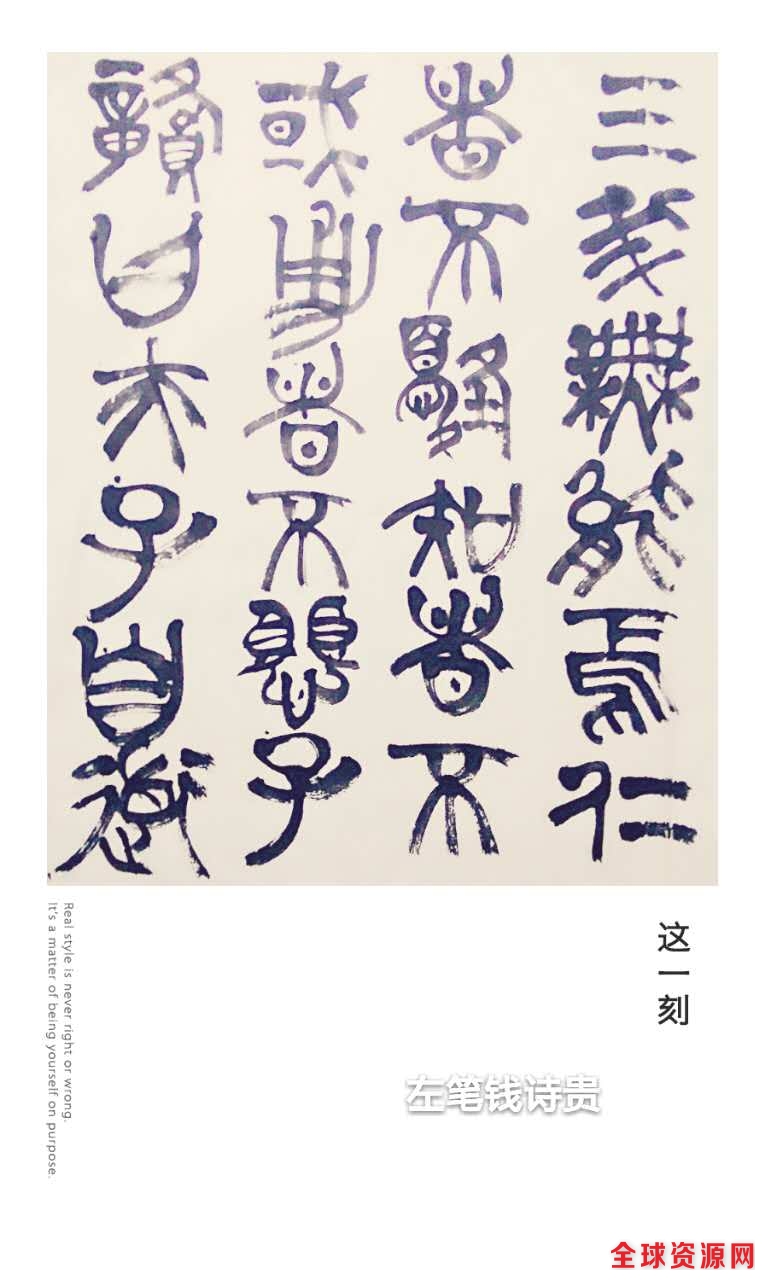 三我無能焉仁
者不憂知者不
惑勇者不懼子
贛曰夫子自道
这一刻
Real style is never right or wrong.
It's a matter of being yourself on purpose.
左笔钱诗贵
全球资源网